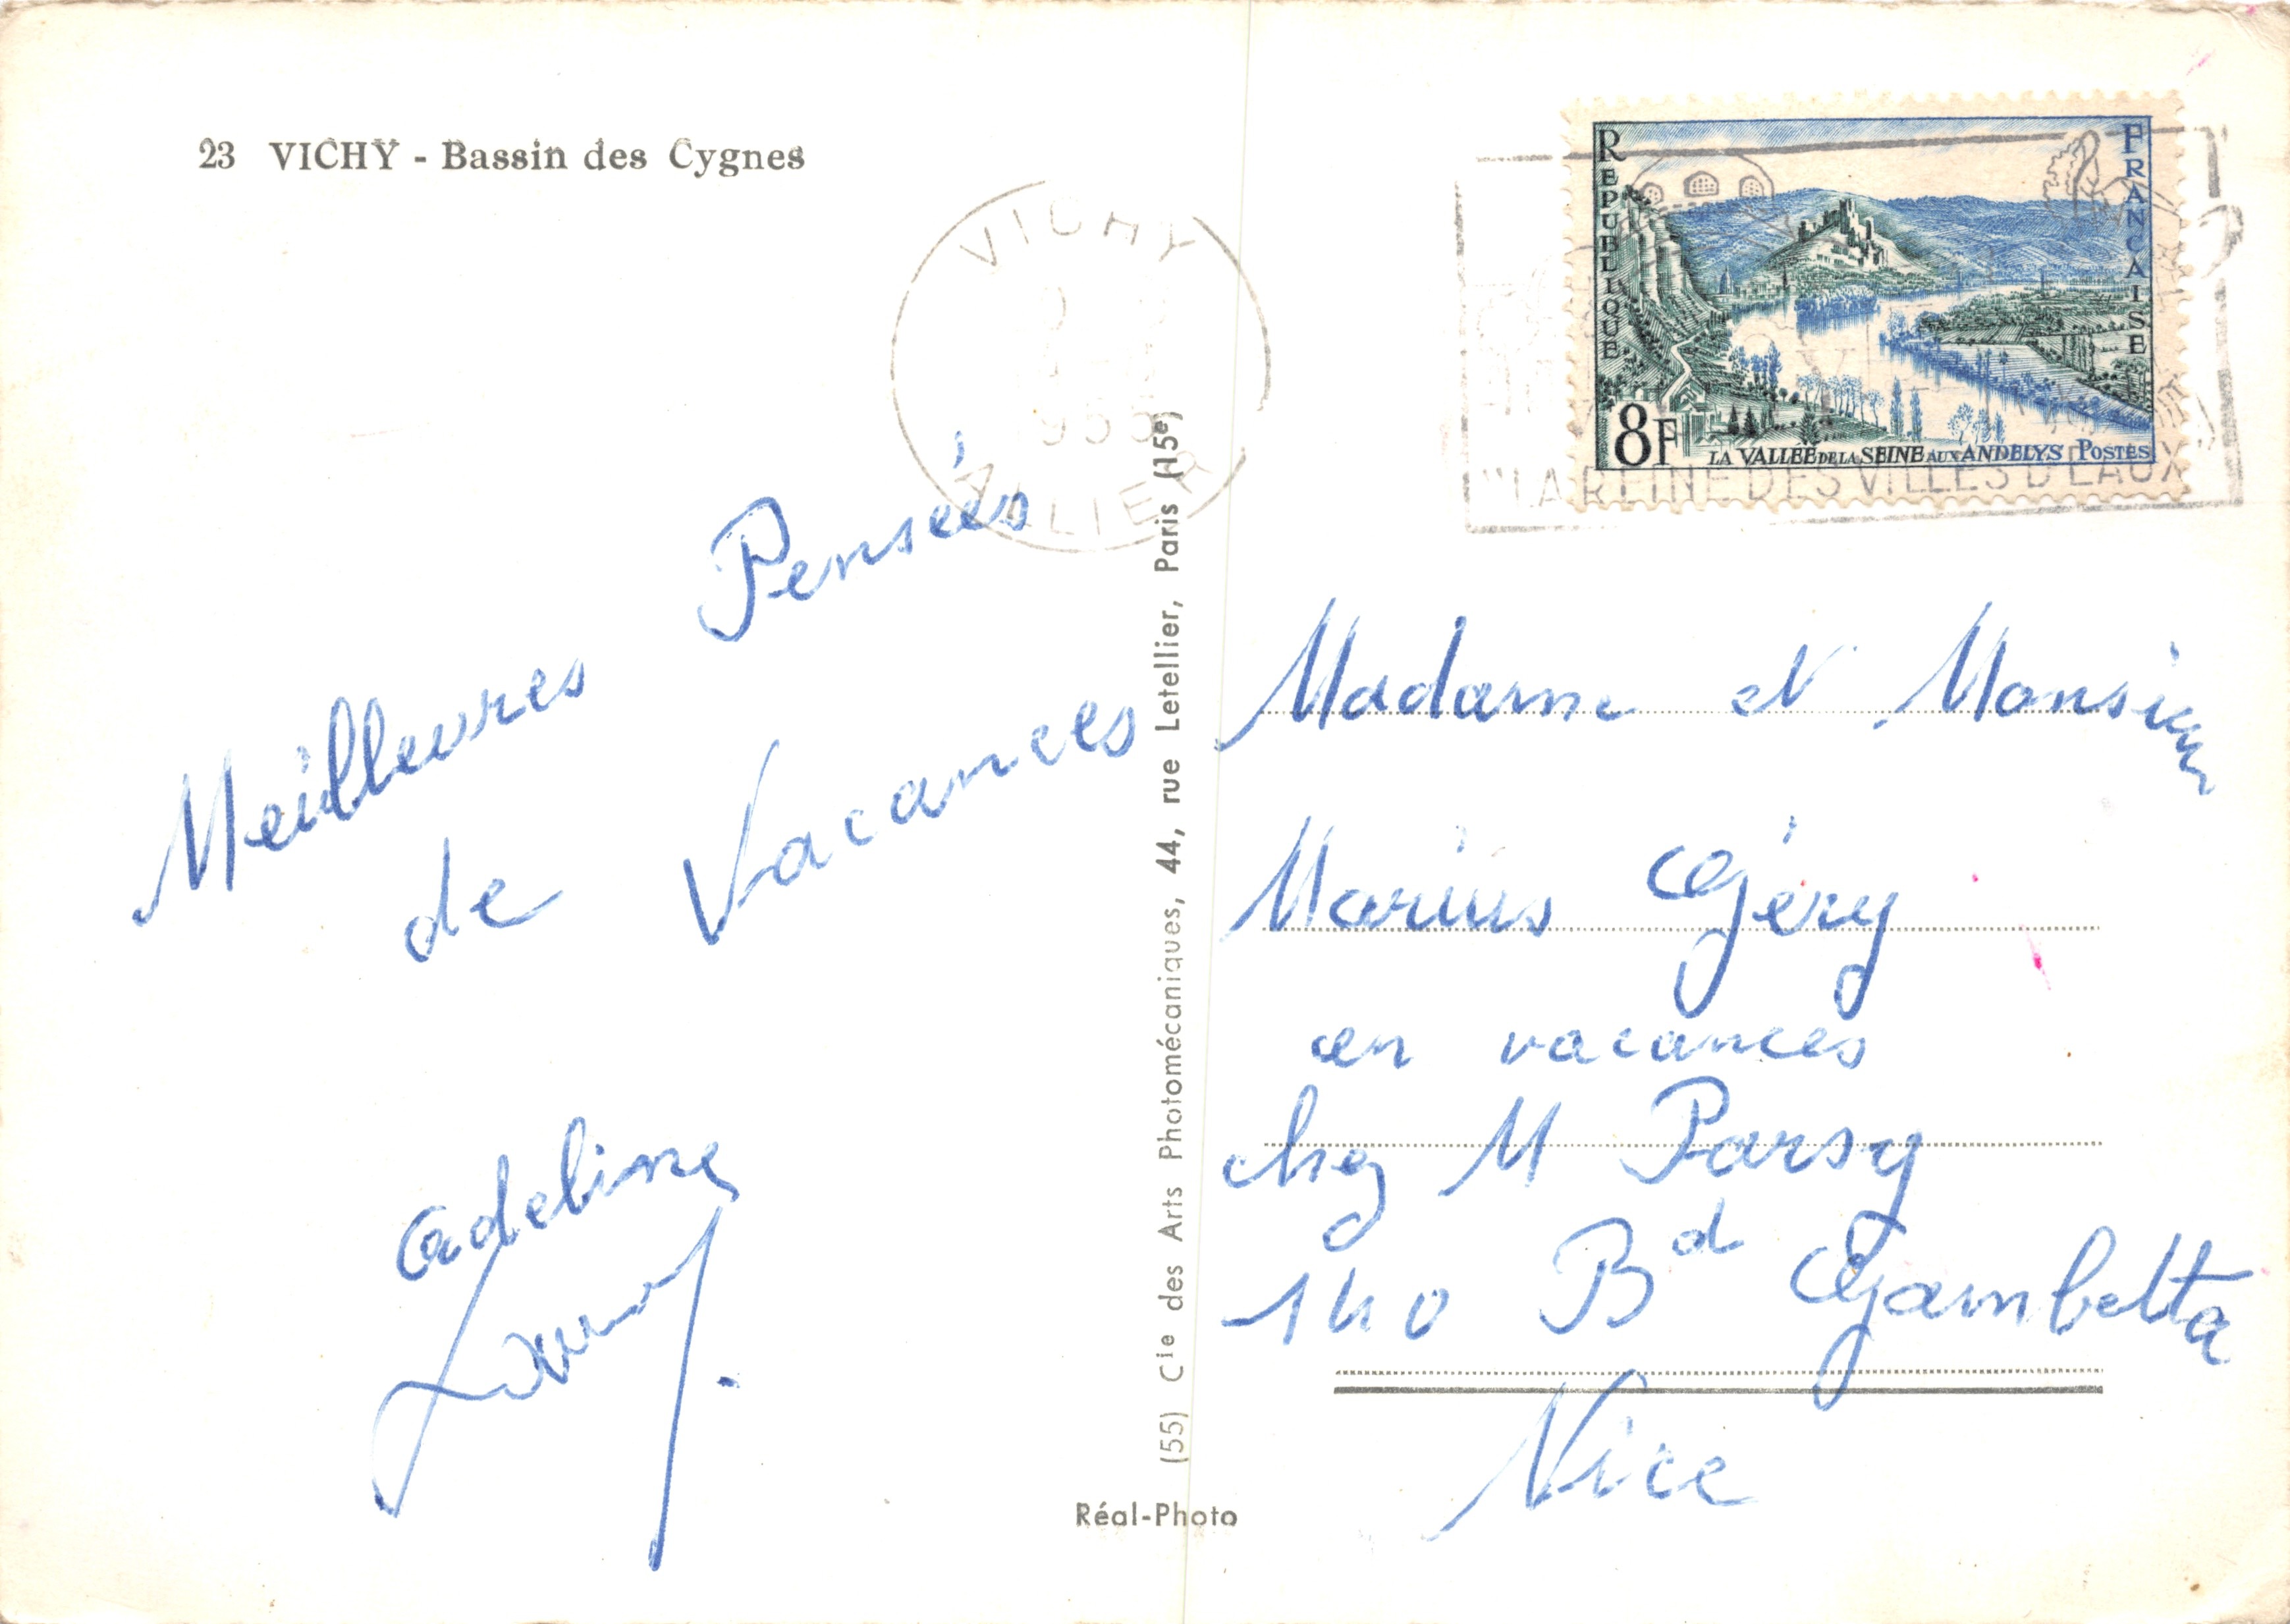 23 VICHY - Bassin des Cygnes
VICHY
ALLIER
RÉPUBLIQUE FRANÇAISE
8F
LA VALLÉE DE LA SEINE AUX ANDELYS POSTES
"LA REINE DES VILLES D'EAUX"
Meilleures Pensées
de Vacances
Adeline
Madame et Monsieur
Marius Géry
en vacances
chez M Parsy
140 Bd Gambetta
Nice
(55) Cie des Arts Photomécaniques, 44, rue Letellier, Paris (15e)
Réal-Photo